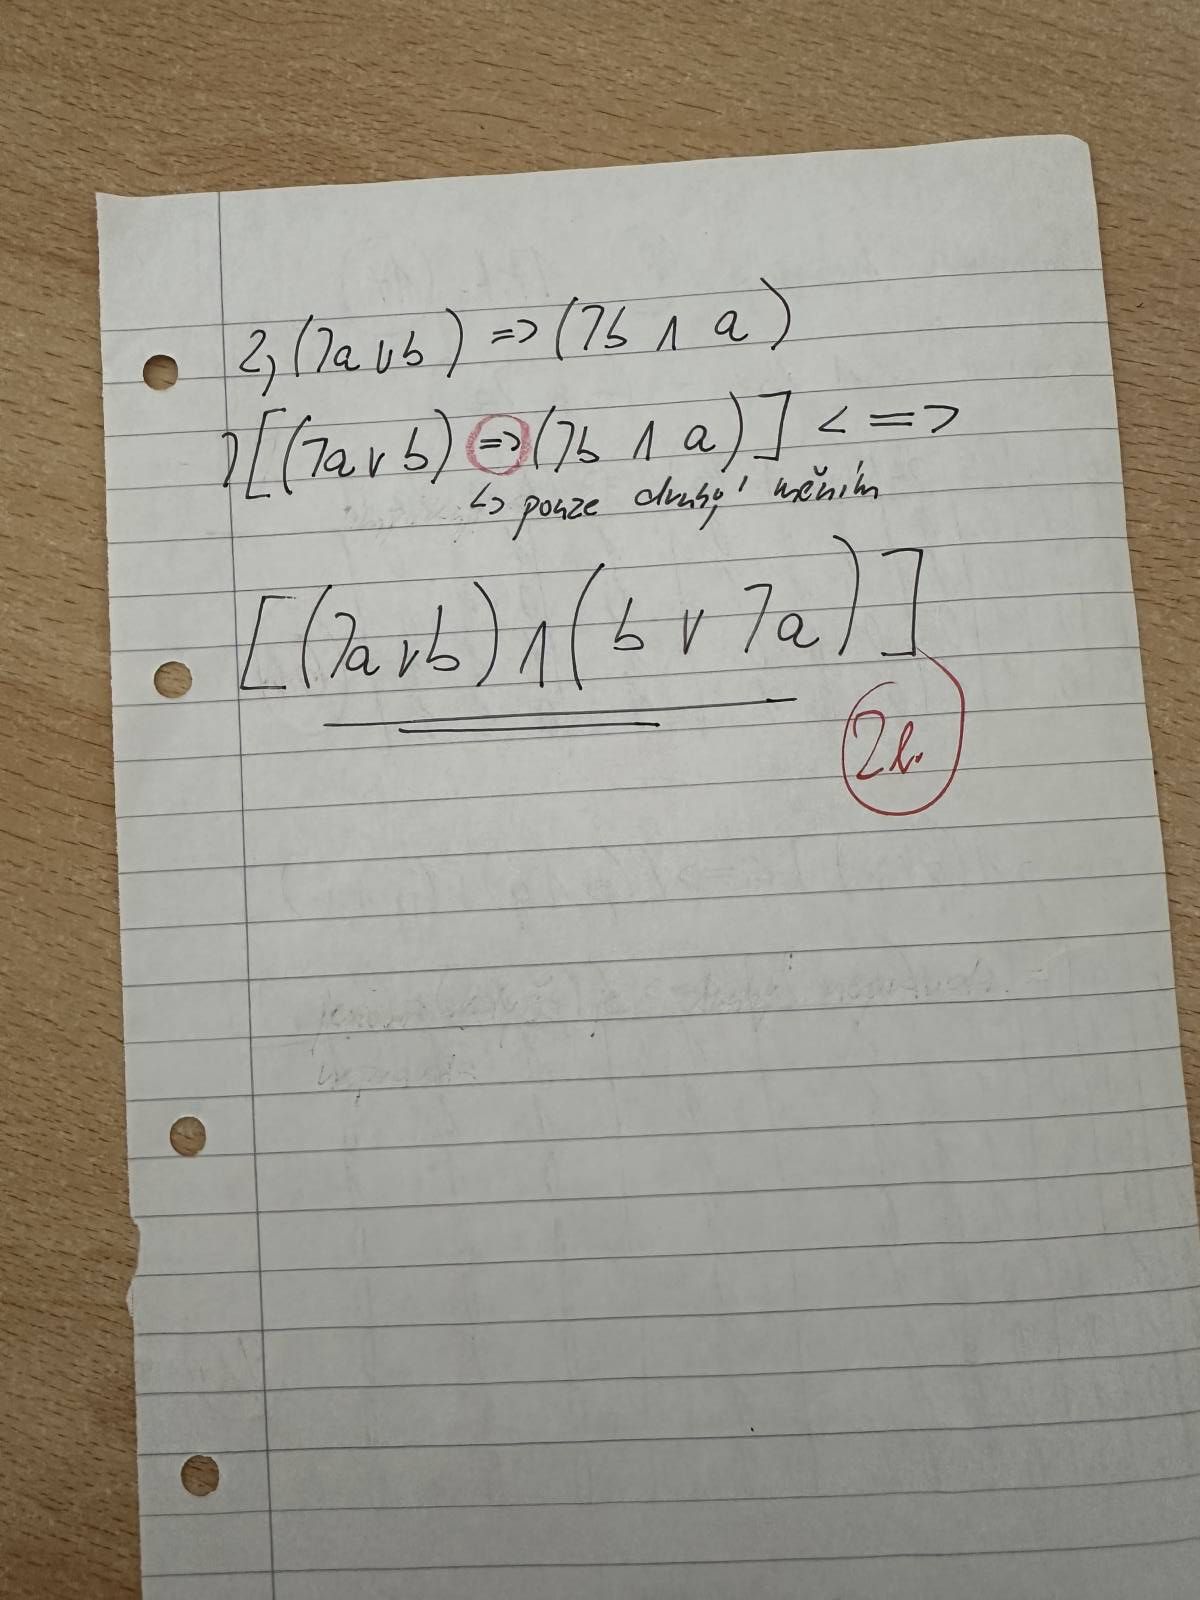 2, (¬a ∨ b) => (¬b ∧ a)
¬[(¬a ∨ b) => (¬b ∧ a)] <=>
↳ pouze druhý měním
[(¬a ∨ b) ∧ (b ∨ ¬a)]
2b.